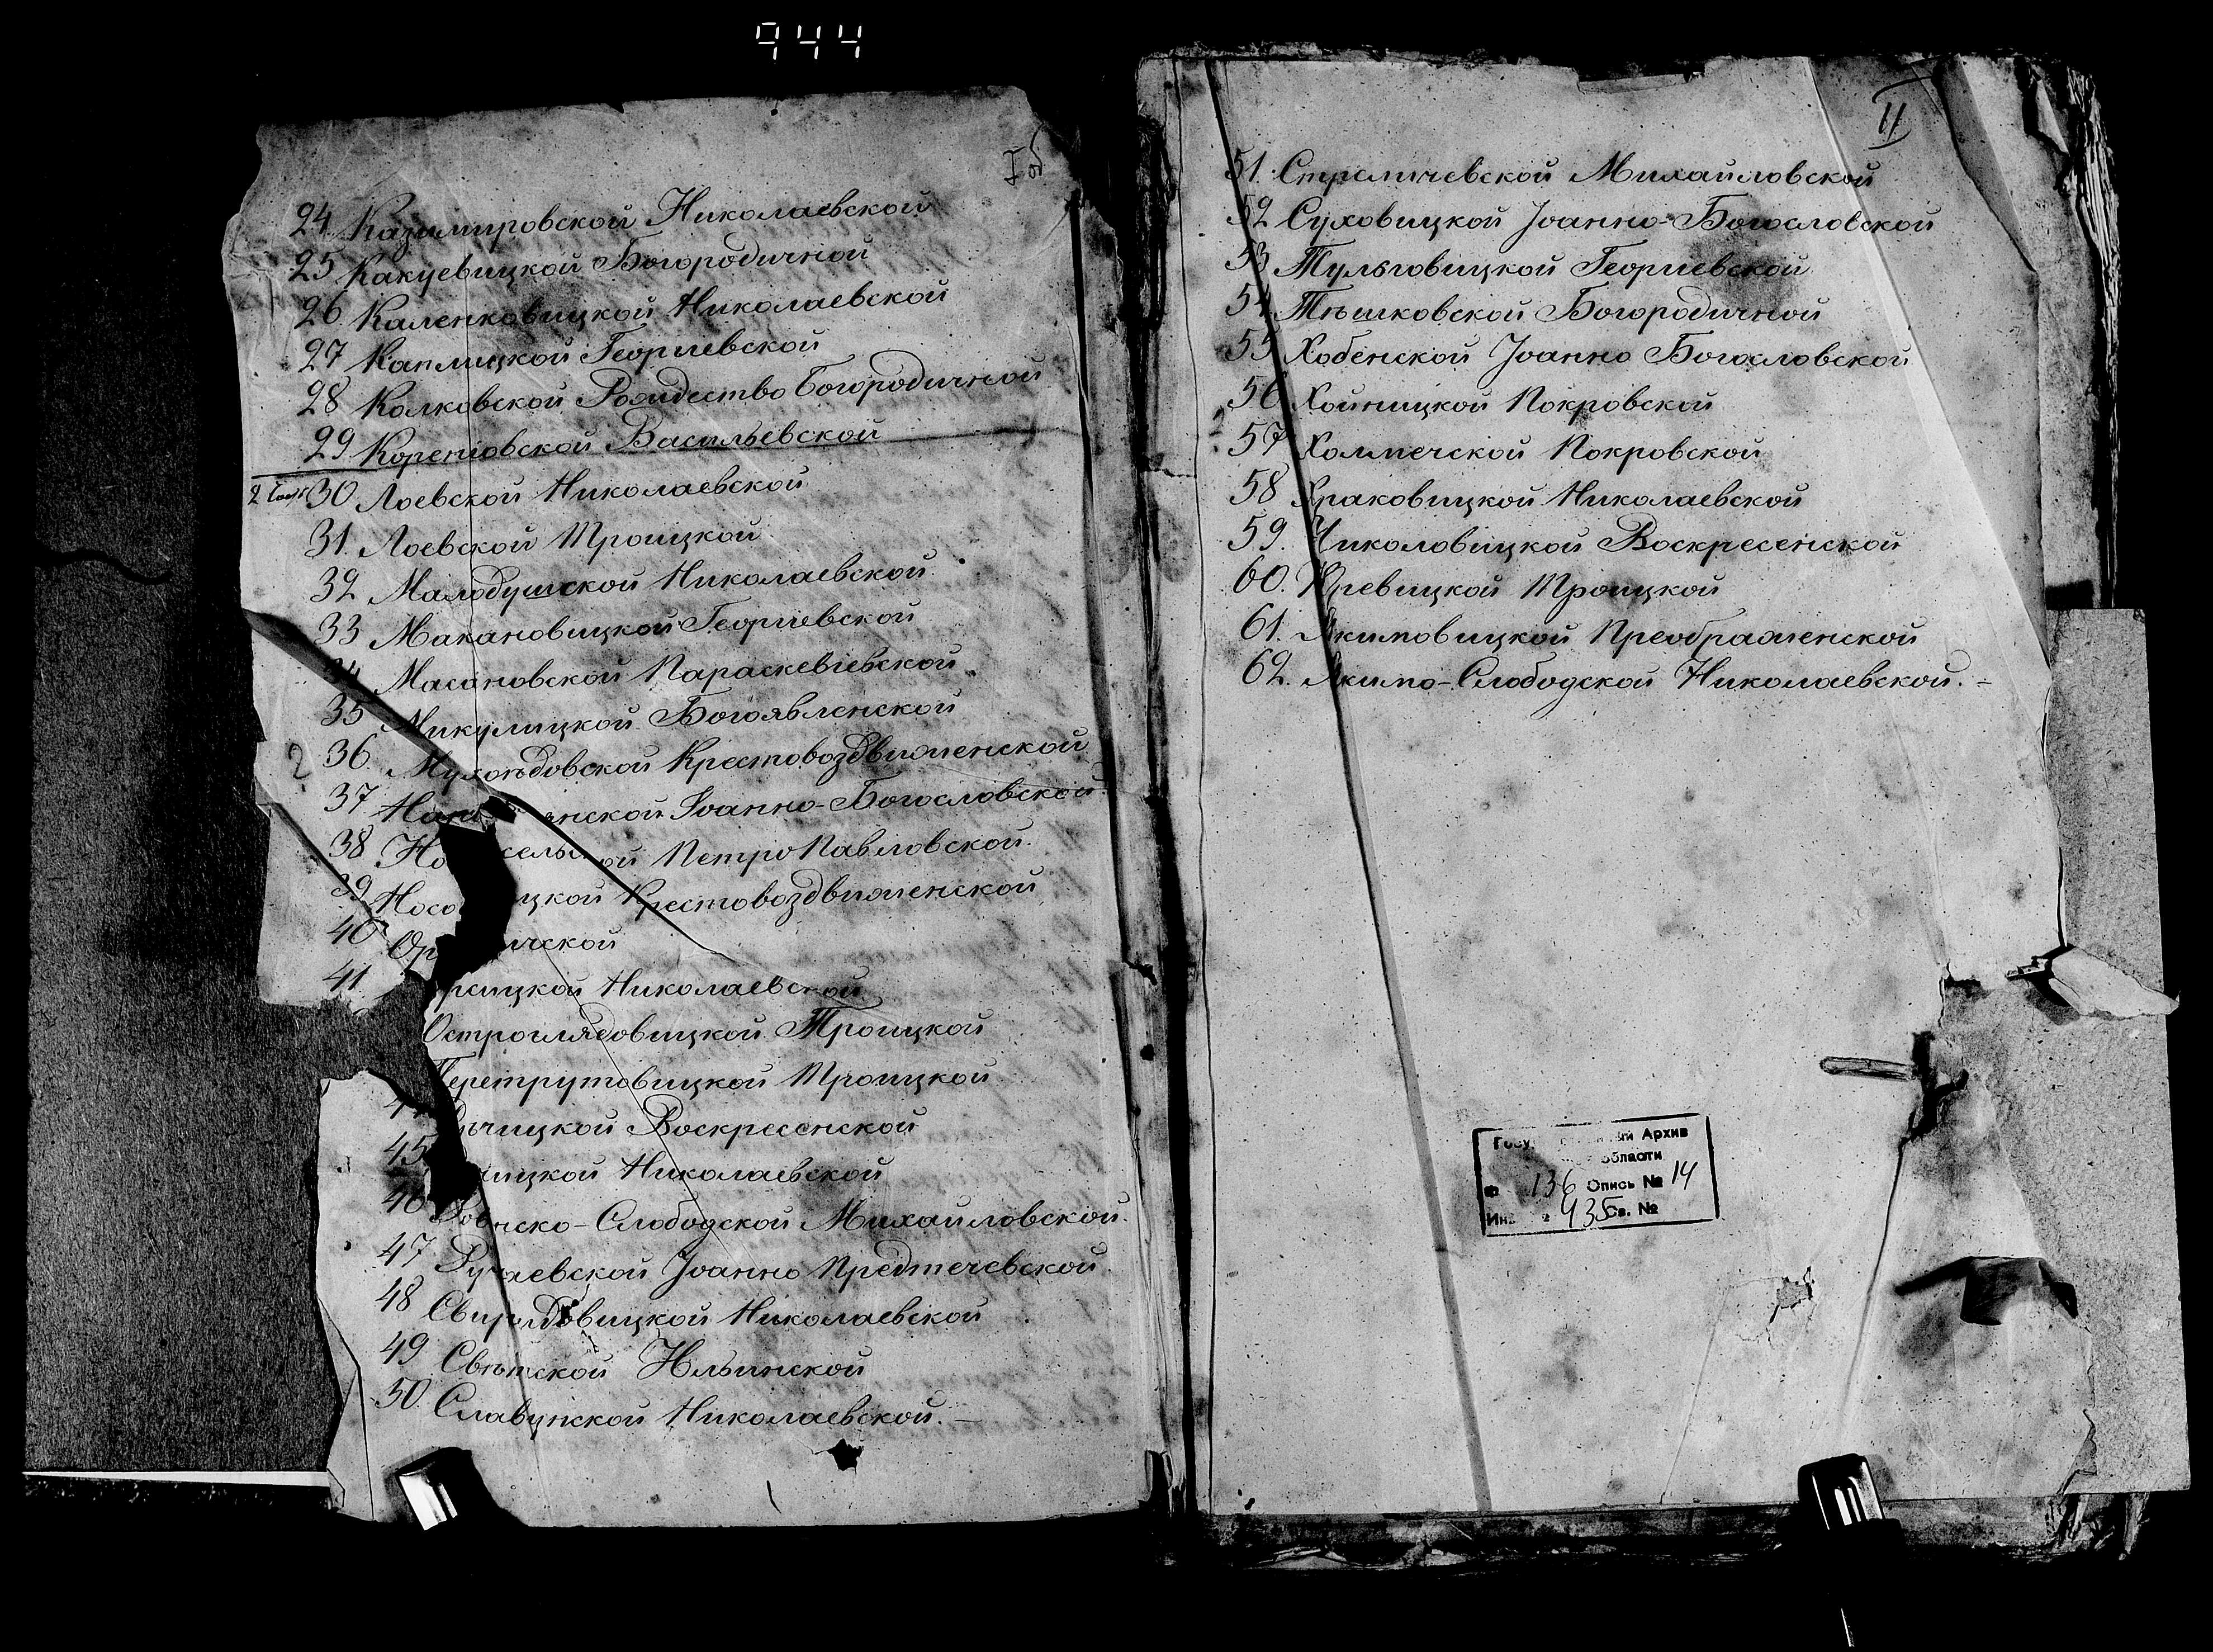 944
I об
24 Казимировской Николаевской
25 Какуевицкой Богородичной
26 Каленковицкой Николаевской
27 Каплицкой Георгіевской
28 Колковской Рождество Богородичной
29 Кореневской Васильевской
2 30 Лоевской Николаевской
31. Лоевской Троицкой
32 Малодушской Николаевской
33 Макановицкой Георгіевской
34 Масановской Параскевіевской
35 Микулицкой Богоявленской
2 36 Мухоѣдовской Крестовоздвиженской
37 нской Іоанно-Богословской
38 Но сельской Петро Павловской
39 Носо цкой Крестовоздвиженской
40 Ор ичской
41 рсицкой Николаевской
Остроглядовицкой Троицкой
Перетрутовицкой Троицкой
чицкой Воскресенской
45 ицкой Николаевской
46 нско-Слободской Михайловской
47 Ручаевской Іоанно Предтечевской
48 Свиридовицкой Николаевской
49 Свѣтской Ильинской
50. Славунской Николаевской. —
II
51. Стреличевской Михайловской
52 Суховицкой Іоанно-Богословской
53 Тульговицкой Георгіевской
54 Тѣшковской Богородичной
55 Хобенской Іоанно Богословской
56 Хойницкой Покровской
57 Холмечской Покровской
58 Храковицкой Николаевской
59. Чиколовицкой Воскресенской
60. Юревицкой Троицкой
61. Якимовицкой Преображенской
62. Якимо-Слободской Николаевской. -
Госу й Архив
области
Ф 136 Опись № 14
Инв. № 935 Св. №